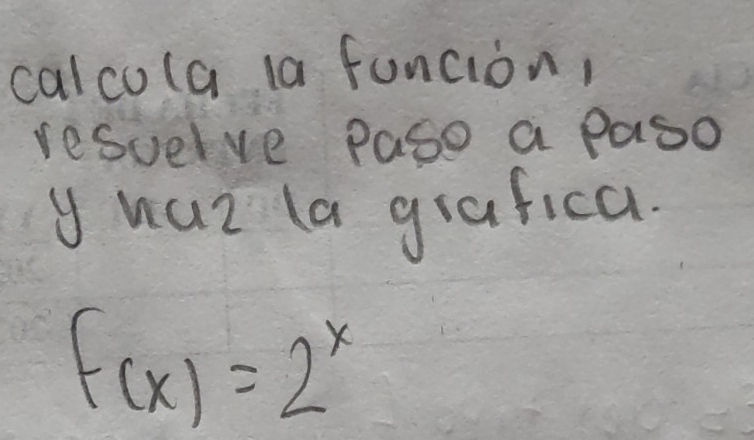 calcula la función,
resuelve paso a paso
y haz la grafica.
f(x) = 2^x